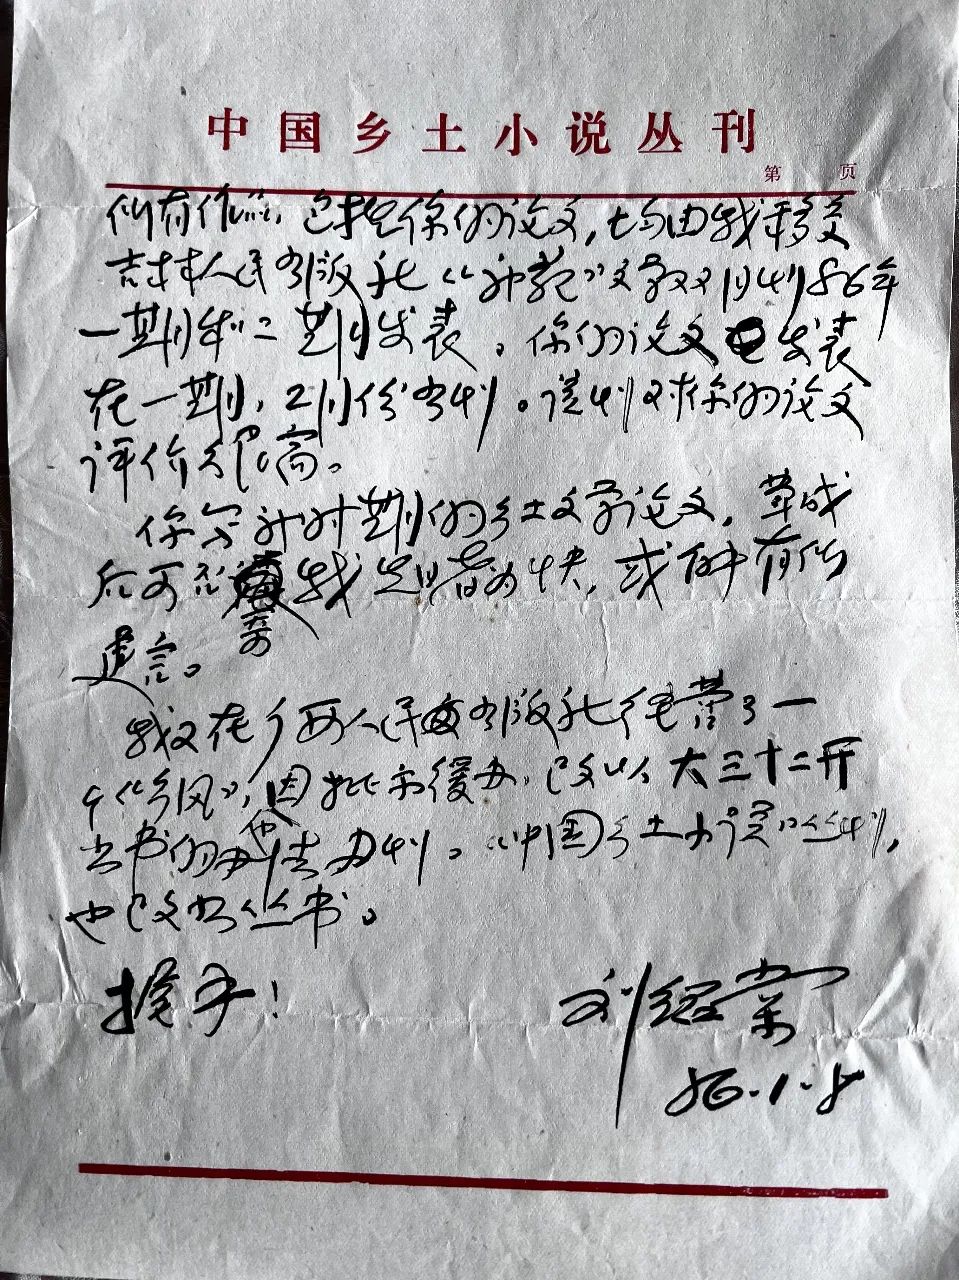 中国乡土小说丛刊
第 页
所有作品，包括你的论文，均由我移交
吉林人民出版社《 》文学双月刊86年
一期和二期发表。你的论文已发表
在一期，2月份出刊。该刊对你的论文
评价很高。
你写新时期的乡土文学论文，草成
后可 寄我 先睹为快，或 有所
建言。
我又在广西人民出版社经营了一
个《乡风》，因批示缓办，已改以大三十二开
丛书的办法办刊。《中国乡土小说》丛刊，
也已改为丛书。
握手！
刘绍棠
86.1.8